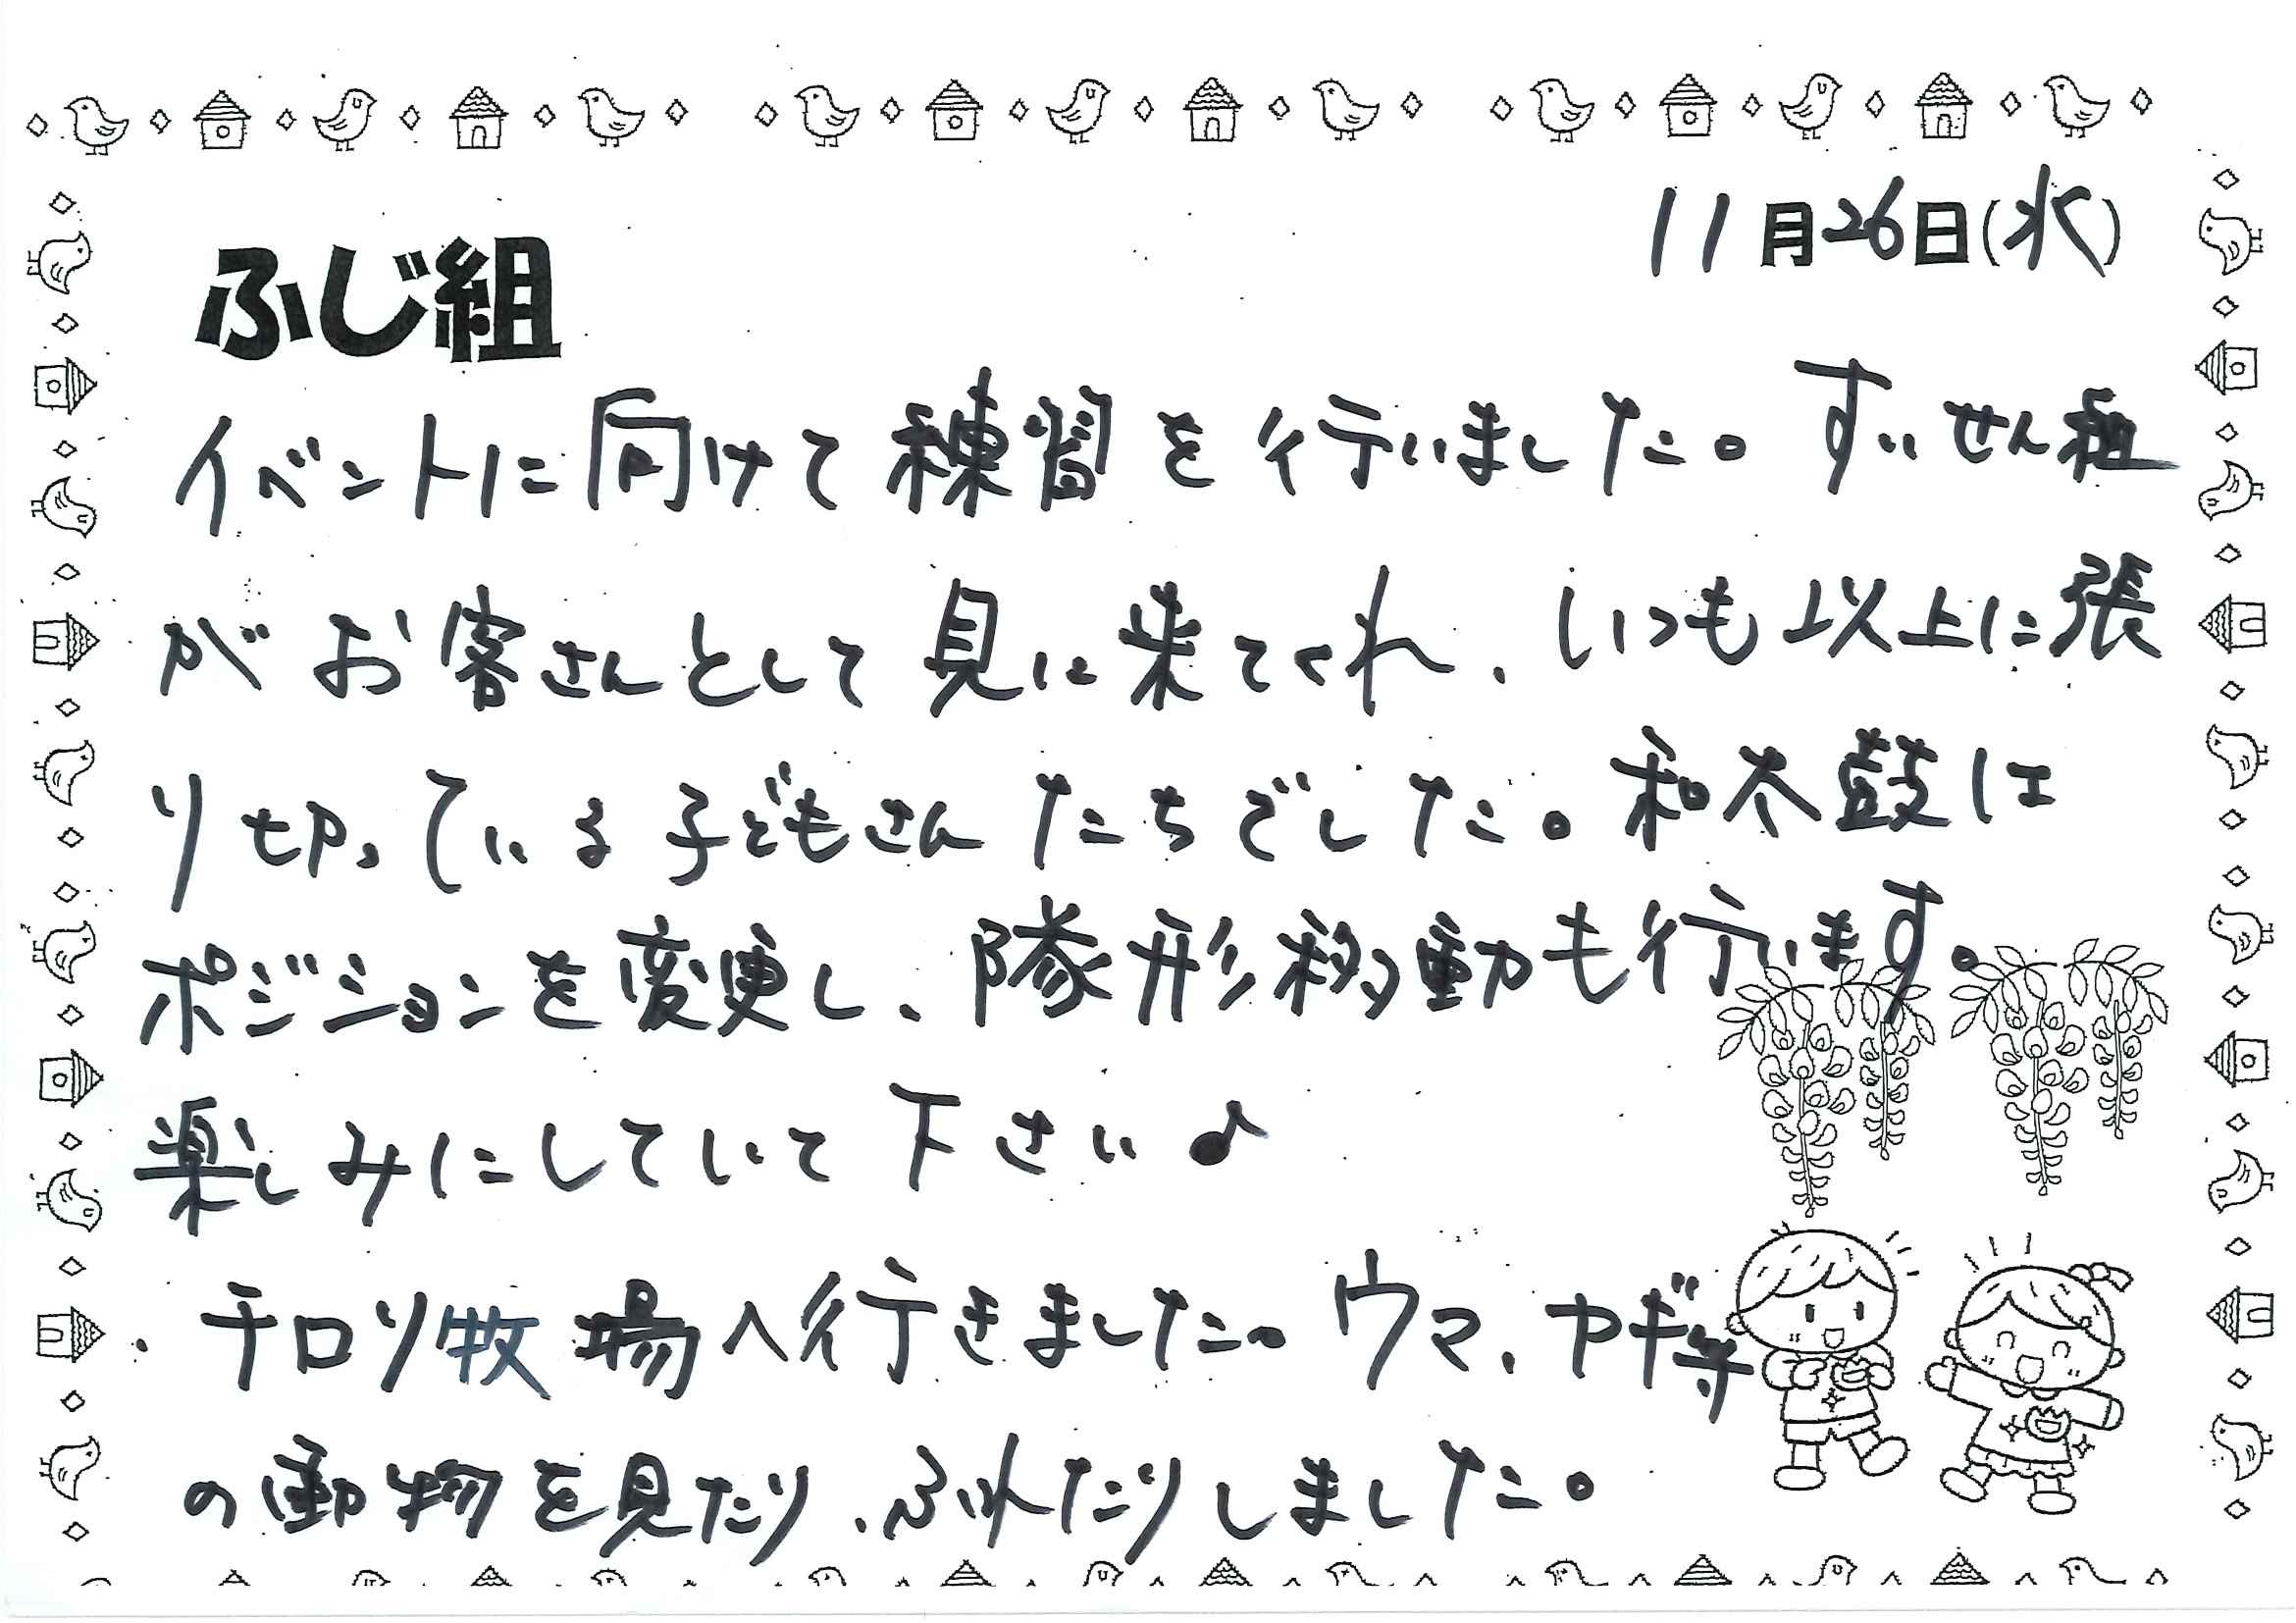 11月26日(水)
ふじ組
イベントに向けて練習を行いました。すいせん組
がお客さんとして見に来てくれ、いつも以上に張
り切っている子どもさんたちでした。和太鼓は
ポジションを変更し、隊形移動も行います。
楽しみにしていて下さい♪
・チロリ牧場へ行きました。ウマ、ヤギ等
の動物を見たり、ふれたりしました。